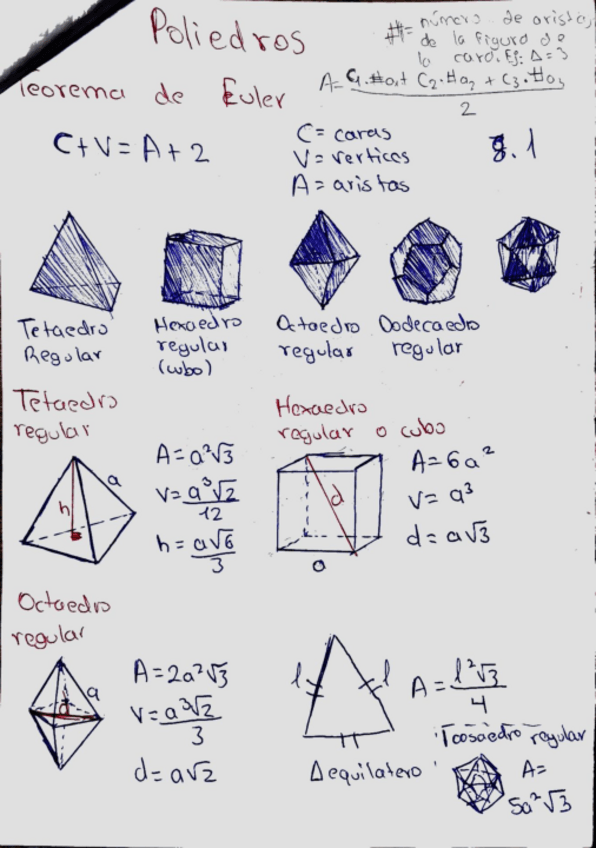 Poliedros
#= número de aristas
de la figura de
la cara. Ej: Δ=3
Teorema de Euler
A= C₁·#a₁+ C₂·#a₂ + C₃·#a₃
2
C+V=A+2
C= caras
V= vertices
A= aristas
8.1
Tetaedro
Regular
Hexaedro
regular
(cubo)
Octaedro
regular
Dodecaedro
regular
Tetaedro
regular
h
a
A=a²√3
V=a³√2
12
h=a√6
3
Hexaedro
regular o cubo
d
a
A=6a²
V=a³
d=a√3
Octaedro
regular
d
a
A=2a²√3
V=a³√2
3
d=a√2
l
l
Δequilatero
A=l²√3
4
Icosaedro regular
A=
5a²√3